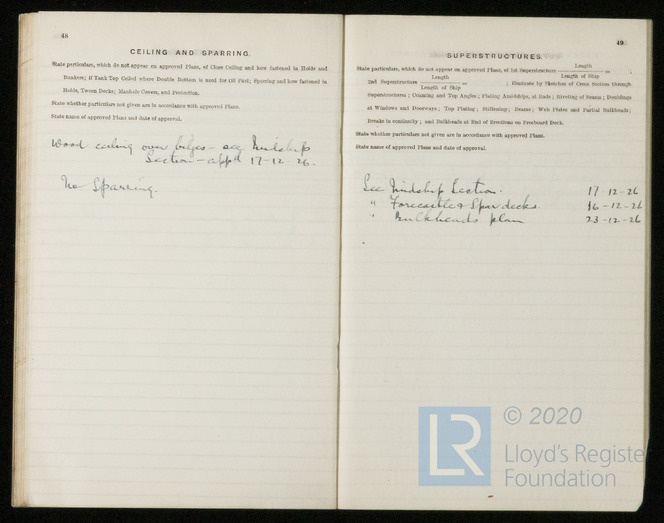 48
CEILING AND SPARRING.
State particulars, which do not appear on approved Plans, of Close Ceiling and how fastened in Holds and
Bunkers; if Tank Top Ceiled where Double Bottom is used for Oil Fuel; Sparring and how fastened in
Holds, Tween Decks; Manhole Covers, and Protection.
State whether particulars not given are in accordance with approved Plans.
State name of approved Plans and date of approval.
Wood ceiling over bilges - see Midship
Section - appd 17-12-26.
No Sparring.
49
SUPERSTRUCTURES.
State particulars, which do not appear on approved Plans, of 1st Superstructure Length / Length of Ship = ;
2nd Superstructure Length / Length of Ship = ; Illustrate by Sketches of Cross Section through
Superstructures; Coaming and Top Angles; Plating Amidships, at Ends; Riveting of Seams; Doublings
at Windows and Doorways; Top Plating; Stiffening; Beams; Web Plates and Partial Bulkheads;
Breaks in continuity; and Bulkheads at End of Erections on Freeboard Deck.
State whether particulars not given are in accordance with approved Plans.
State name of approved Plans and date of approval.
See Midship Section. 17-12-26
" Forecastle & Spar decks. 16-12-26
" Bulkheads plan 23-12-26
LR
© 2020
Lloyd's Register
Foundation